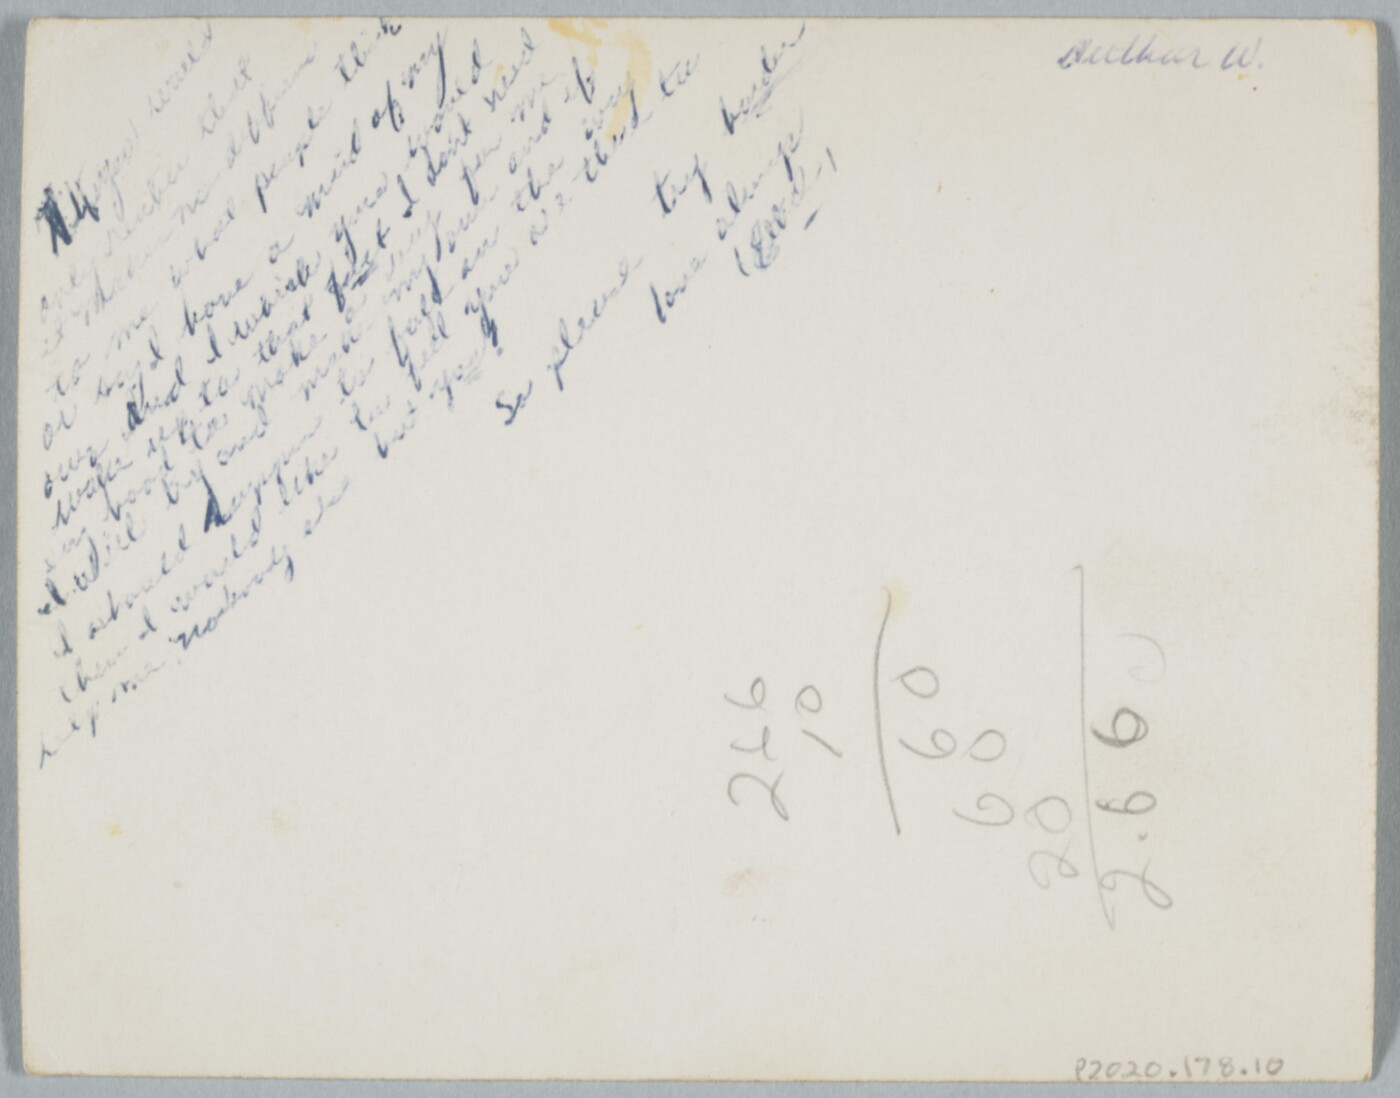 If you would
only realize that
it makes no difference
to me what people think
or say I have a mind of my
own and I wish you would
wake up to that fact I dont need
any body to make a way for me
I will try and make my own and if
I should happen to fall on the way
then I would like to feel you are there to
help me, nobody else but you.
So please try harder
love always
Arthur W.
246
10
60
60
20
2.66
P2020.178.10